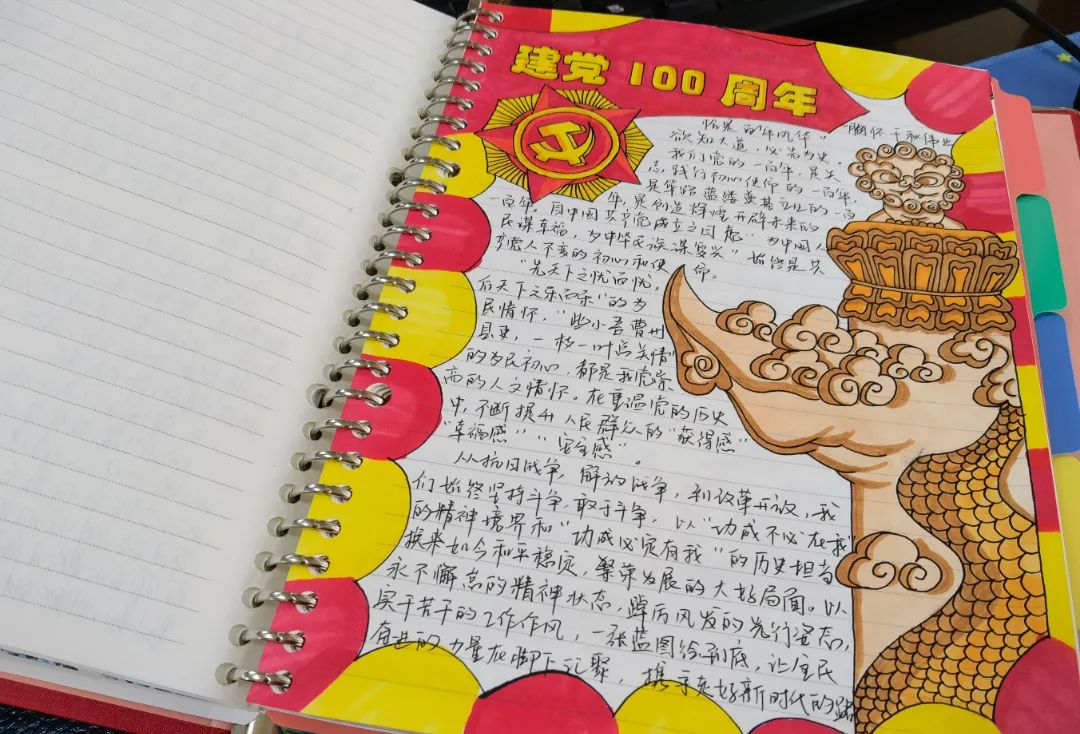 建党100周年
恰是百年风华" "胸怀千秋伟业
欲知大道,必先为史。
我们党的一百年,是矢
志践行初心使命的一百年,
是筚路蓝缕奠基立业的一百
一百年。 年,是创造辉煌开辟未来的
自中国共产党成立之日起"为中国人
民谋幸福,为中华民族谋复兴"始终是共
产党人不变的初心和使命。
"先天下之忧而忧,
后天下之乐而乐"的为
民情怀,"些小吾曹州
县吏,一枝一叶总关情"
的为民初心,都是我党崇
高的人文情怀。在重温党的历史
中,不断提升人民群众的"获得感"
"幸福感""安全感"。
从抗日战争,解放战争,到改革开放,我
们始终坚持斗争,敢于斗争,以"功成不必在我"
的精神境界和"功成必定有我"的历史担当
换来如今和平稳定,繁荣发展的大好局面。以
永不懈怠的精神状态,踔厉风发的先行姿态,
实干苦干的工作作风,一张蓝图绘到底,让全民
奋进的力量在脚下汇聚,携手走好新时代的路